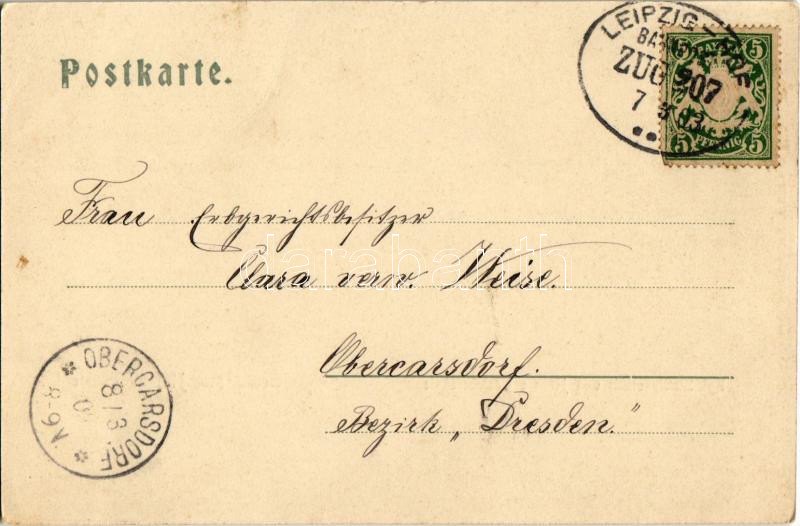 Postkarte.
LEIPZIG - HOF
BAHNPOST
ZUG 207
7 3 03
BAYERN
5 5
5 PFENNIG 5
Frau Erbgerichtsbesitzer
Clara verw. Weise.
Obercarsdorf.
Bezirk „Dresden."
OBERCARSDORF
8/3
8-9V
darabanth